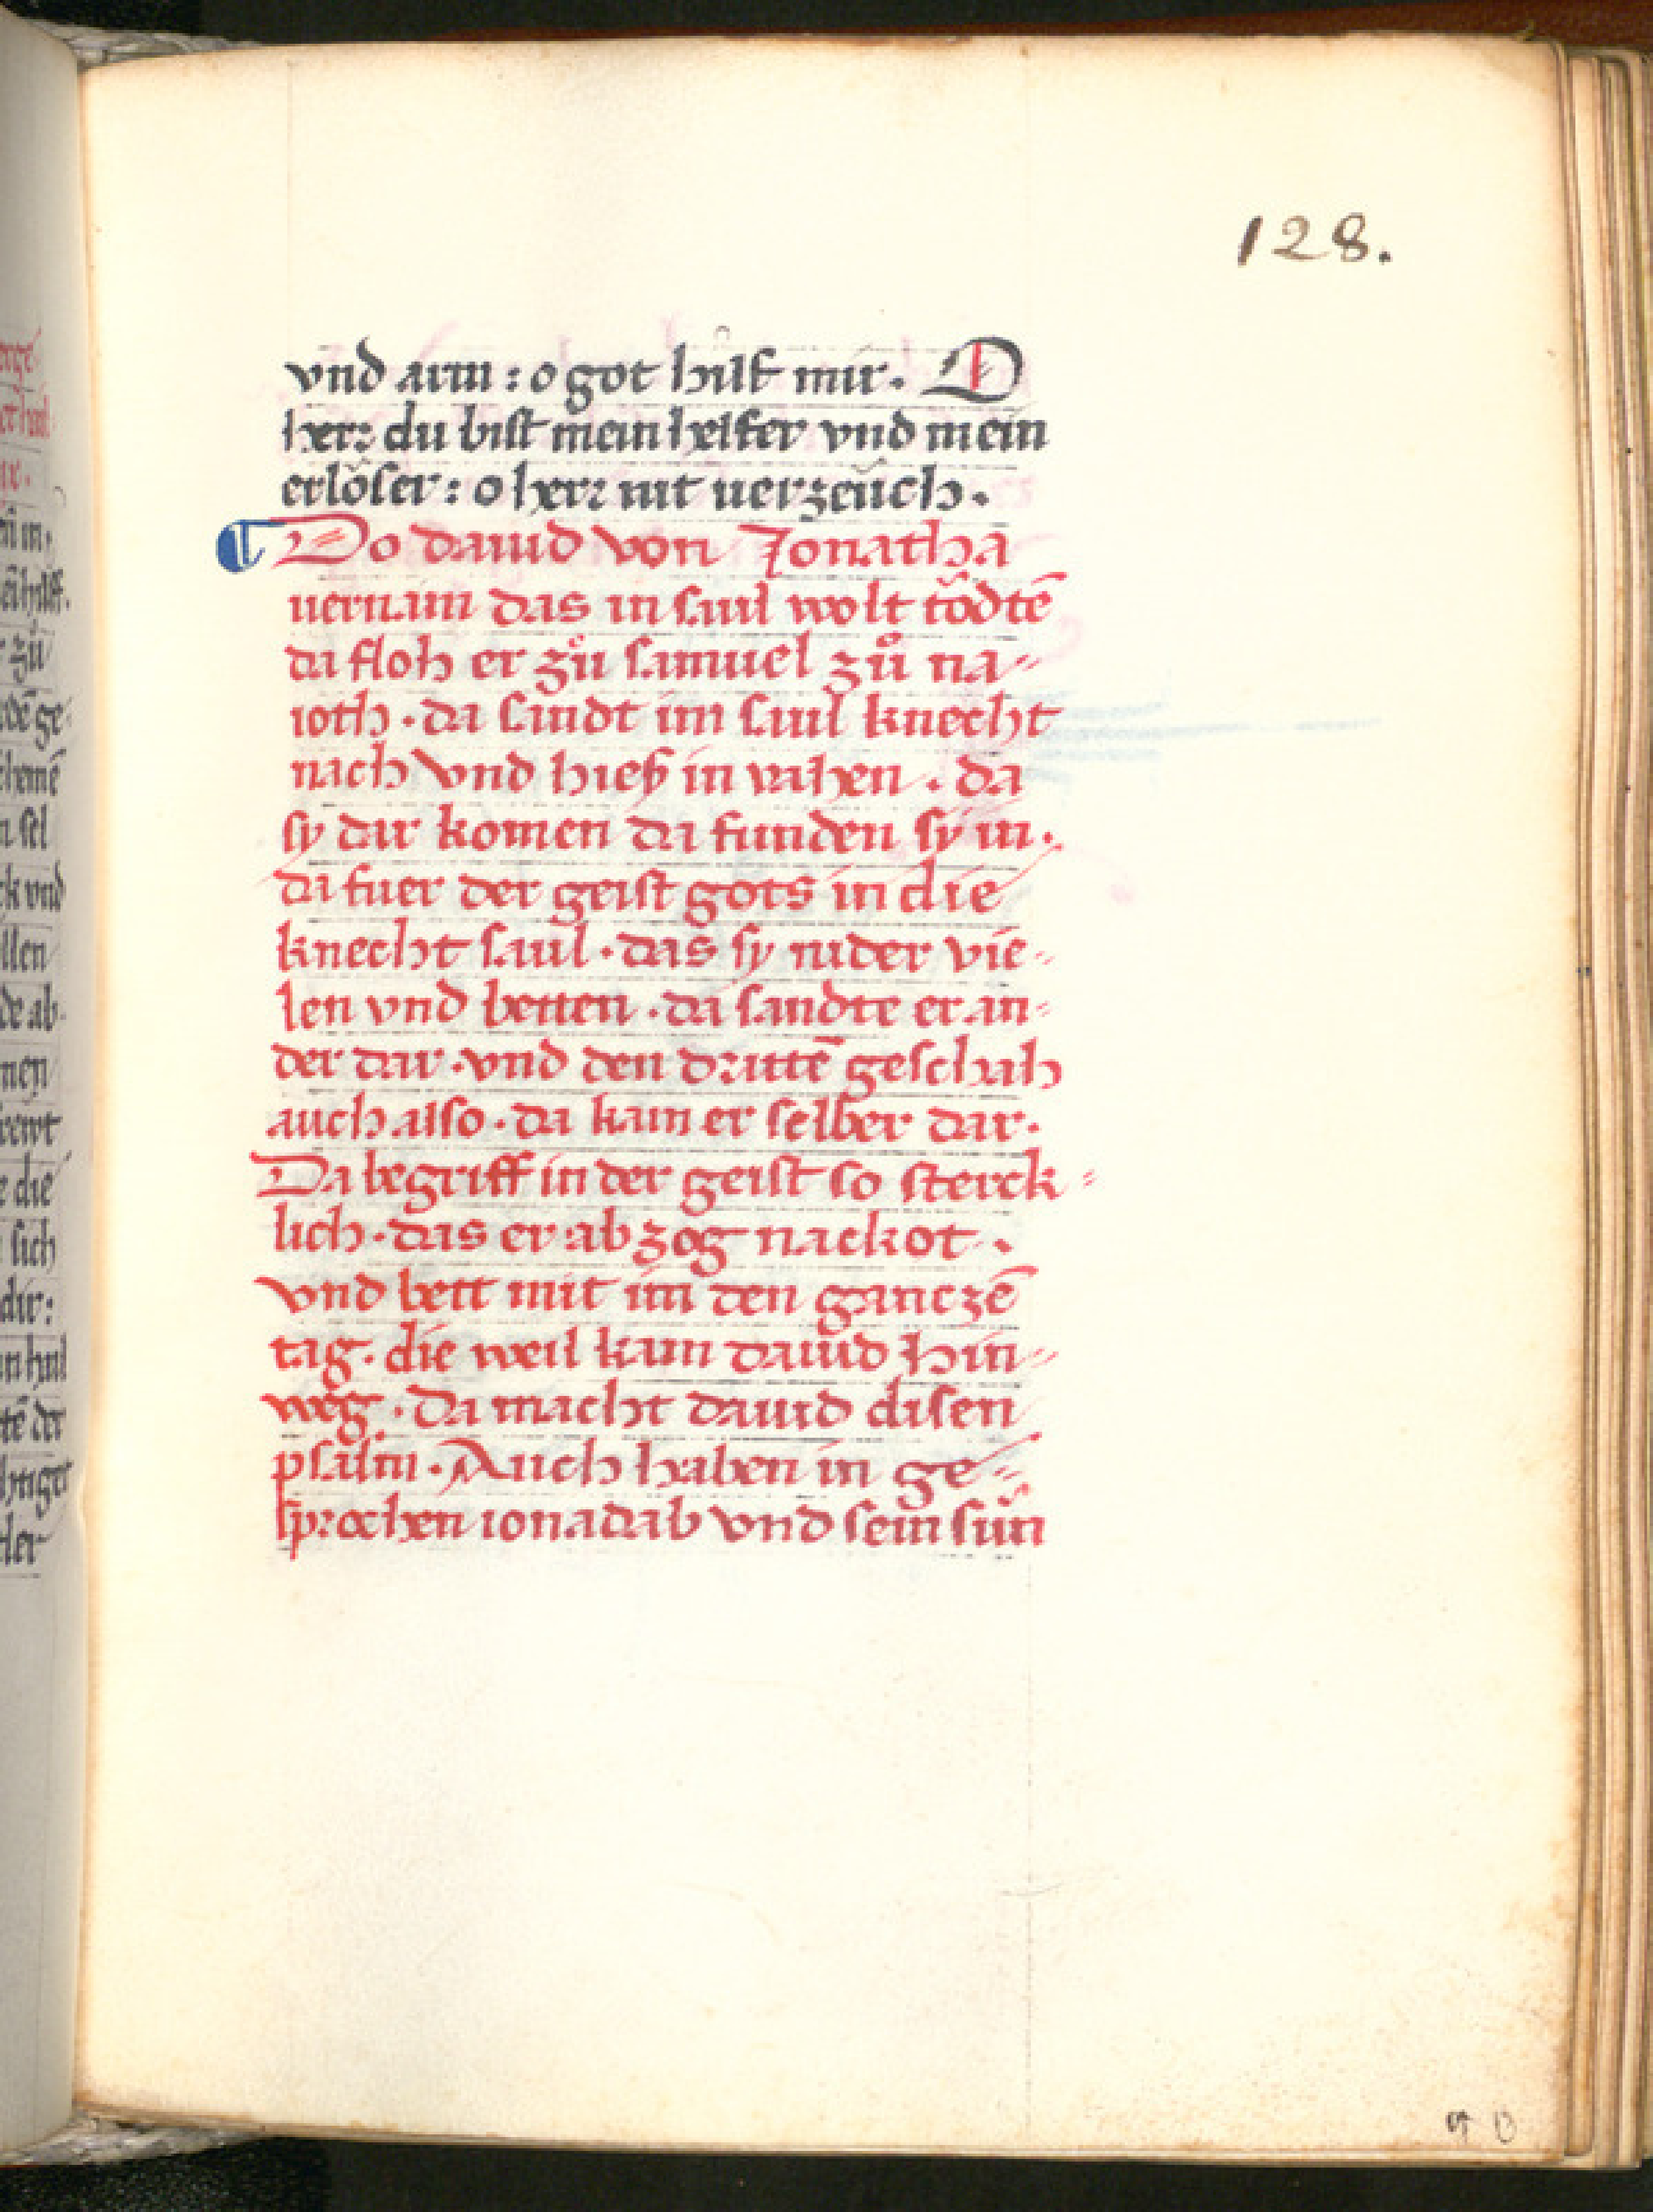 128.
vnd arm : o got hilf mir. O
herr du bist mein helfer vnd mein
erlöser : o herr nit uerzeüch.
¶ Do dauid von Jonatha
uernam das in saul wolt tödtē
da floh er zů samuel zů na-
ioth. da sandt im saul knecht
nach vnd hieß in vahen. da
sy dar komen da funden sy in.
da fuer der geist gots in die
knecht saul. das sy nider vie-
len vnd betten. da sandte er an-
der dar. vnd den drittē geschah
auch also. da kam er selber dar.
Da begriff in der geist so sterck-
lich. das er ab zog nackot.
vnd bett mit im den ganczē
tag. die weil kam dauid hin-
weg. Da macht dauid disen
psalm. Auch haben in ge-
sprochen ionadab vnd sein sün